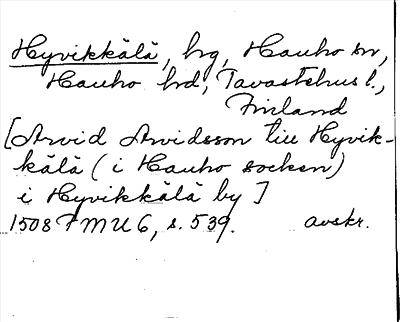 Hyvikkälä, by, Hauho sn,
Hauho hd, Tavastehus l.,
Finland
[Arvid Arvidsson till Hyvik-
kälä (i Hauho socken)
i Hyvikkälä by]
1508 FMU 6, s. 539. avskr.